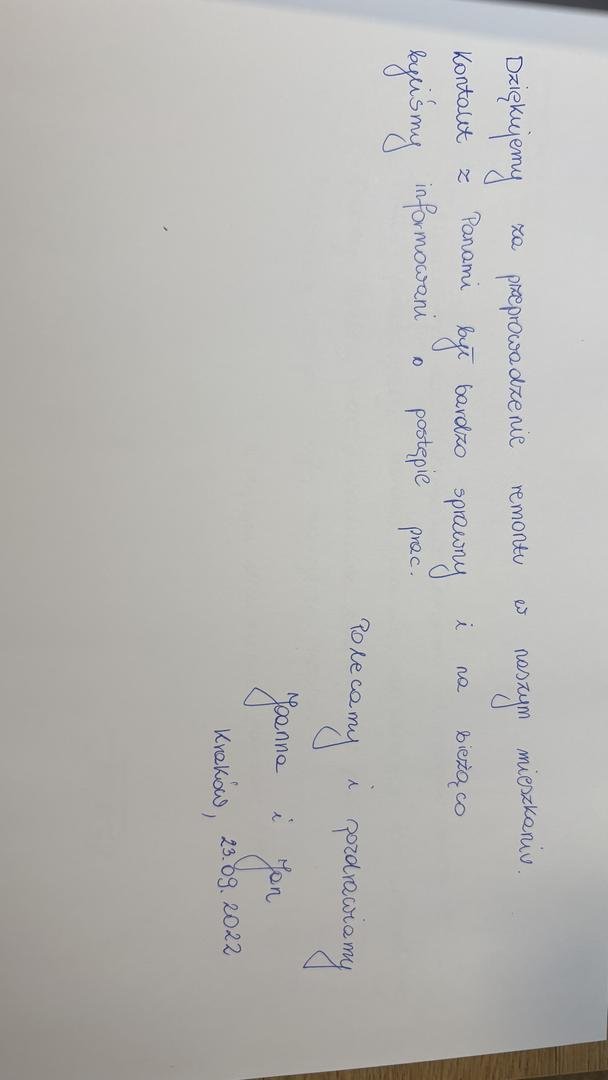 Dziękujemy za przeprowadzenie remontu w naszym mieszkaniu.
Kontakt z Panami był bardzo sprawny i na bieżąco
byliśmy informowani o postępie prac.
Polecamy i pozdrawiamy
Joanna i Jan
Kraków, 23.09.2022